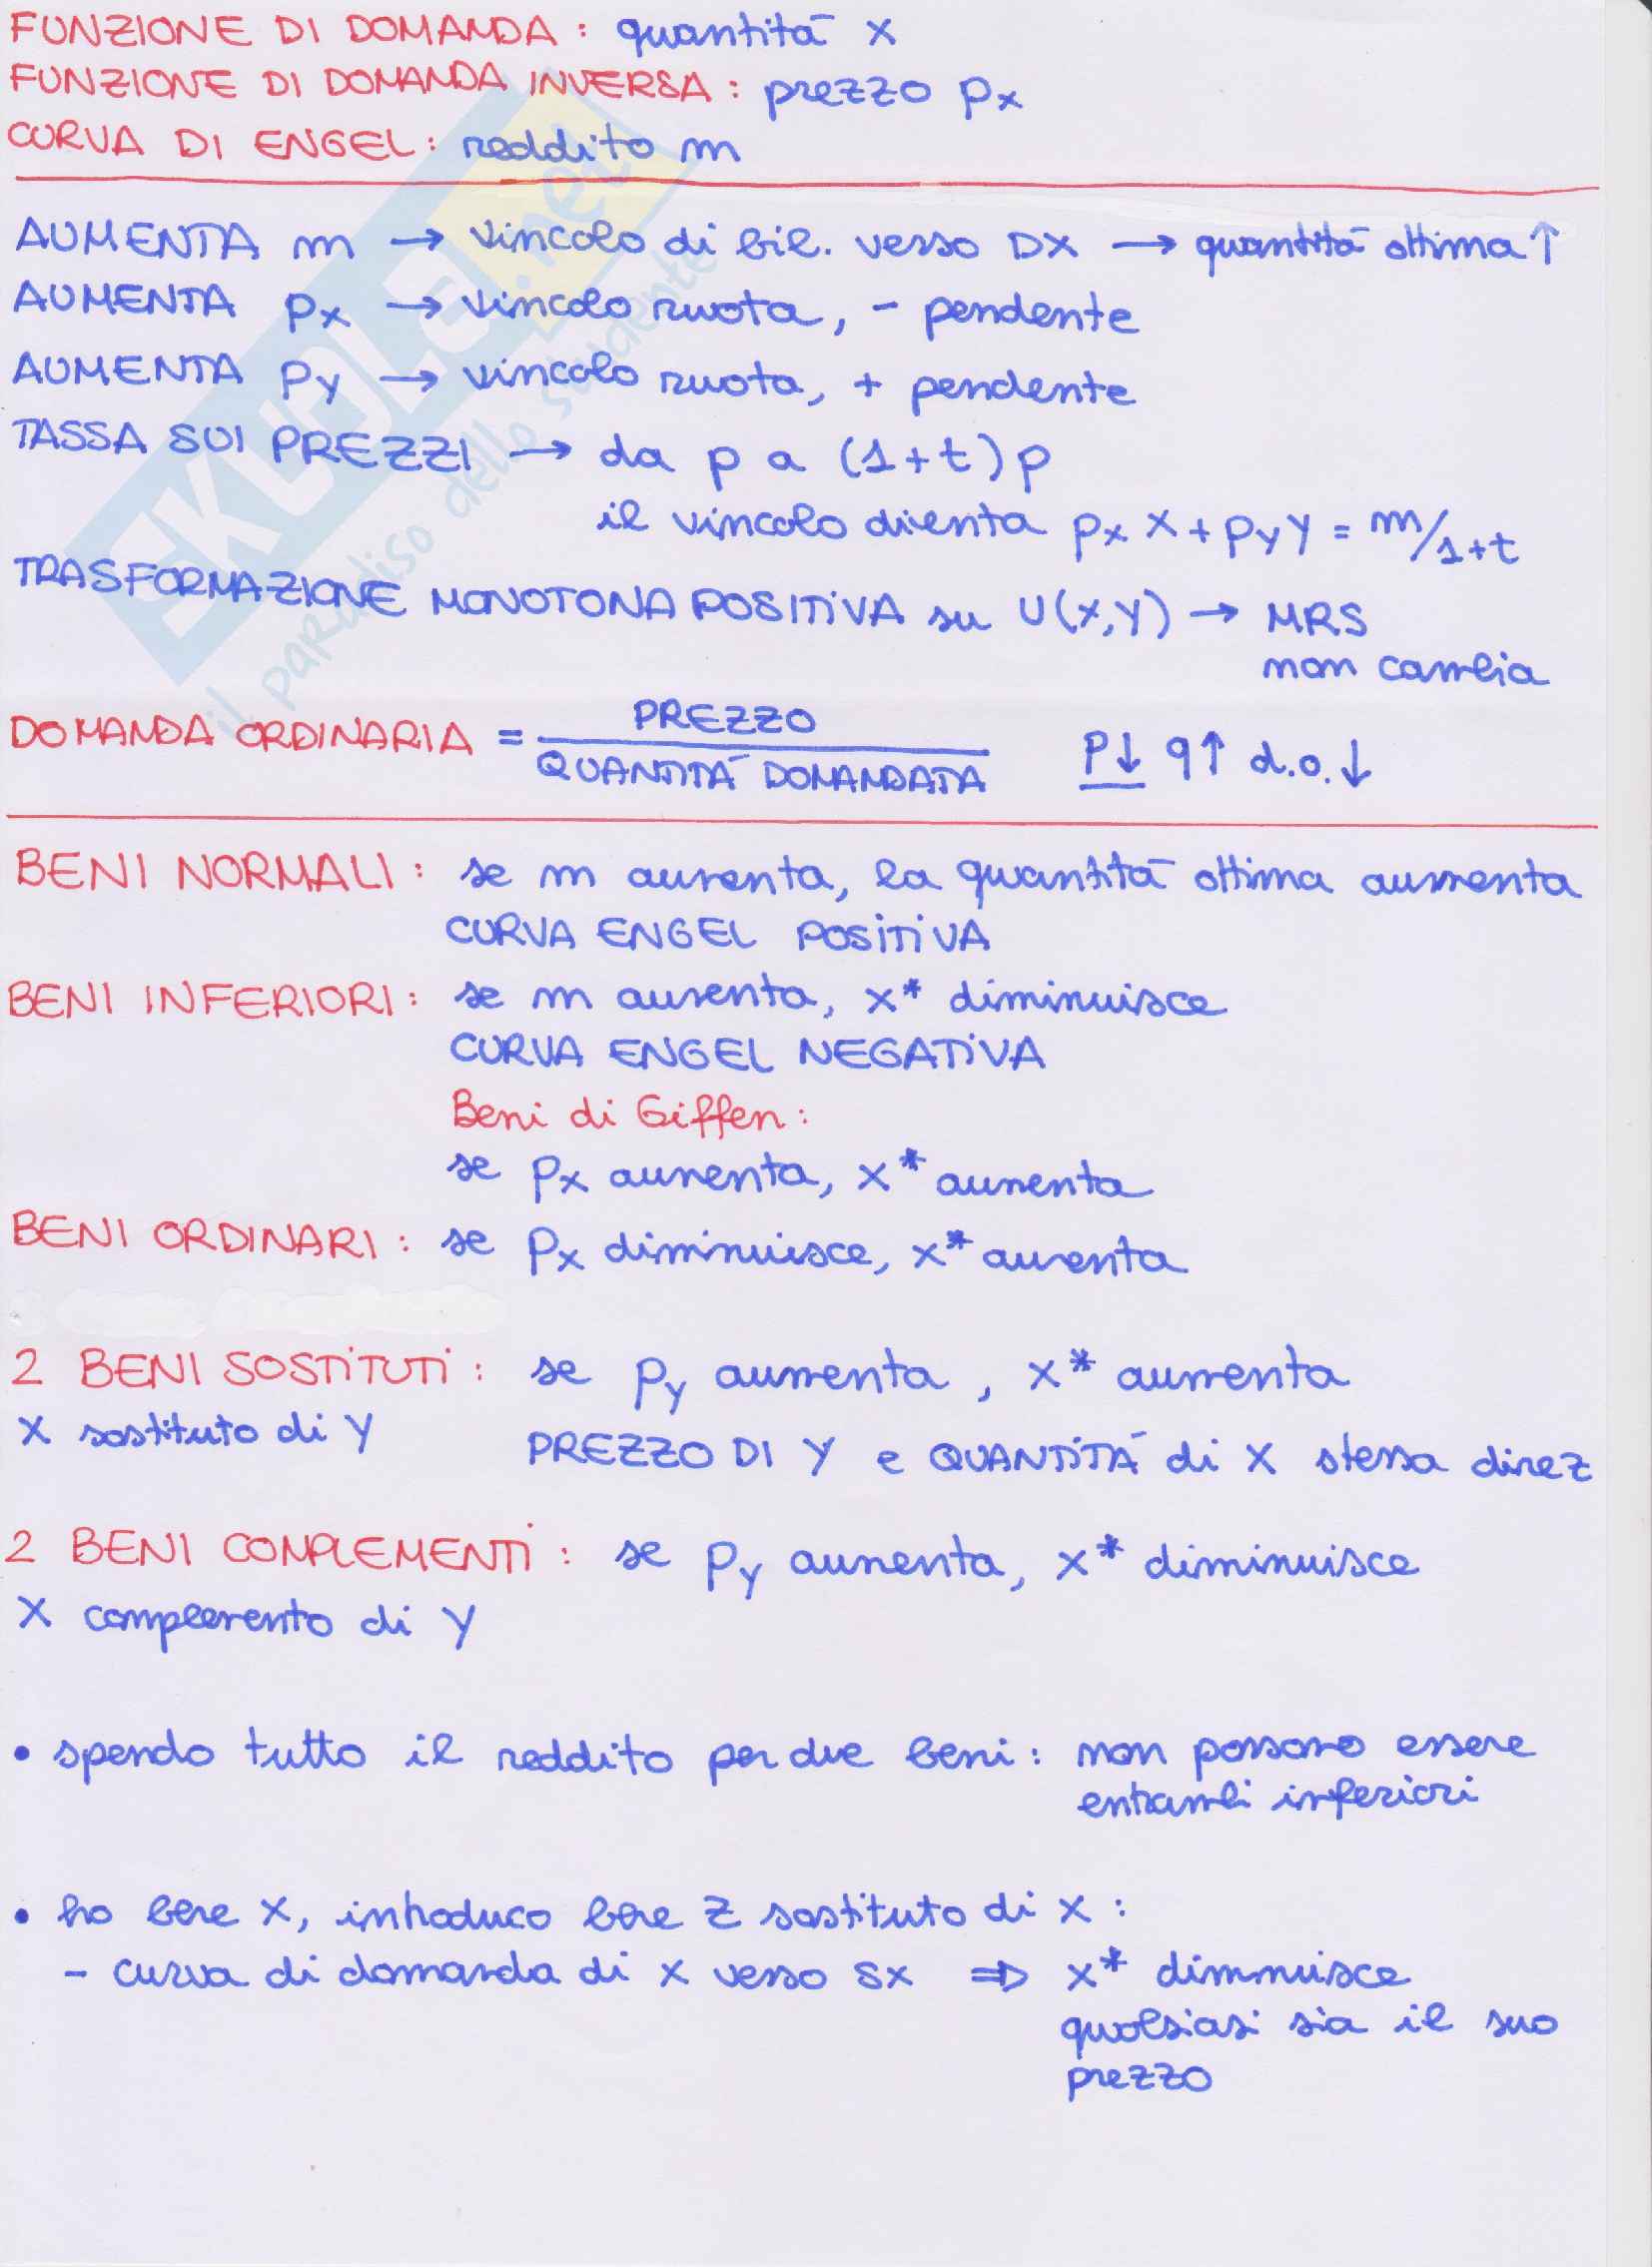 FUNZIONE DI DOMANDA : quantità x
FUNZIONE DI DOMANDA INVERSA : prezzo px
CURVA DI ENGEL : reddito m
AUMENTA m → vincolo di bil. verso DX → quantità ottima ↑
AUMENTA px → vincolo ruota, - pendente
AUMENTA py → vincolo ruota, + pendente
TASSA SUI PREZZI → da p a (1+t)p
il vincolo diventa px x + py y = m/1+t
TRASFORMAZIONE MONOTONA POSITIVA su U(x,y) → MRS
non cambia
DOMANDA ORDINARIA = PREZZO / QUANTITÀ DOMANDATA P↓ q↑ d.o.↓
BENI NORMALI : se m aumenta, la quantità ottima aumenta
CURVA ENGEL POSITIVA
BENI INFERIORI : se m aumenta, x* diminuisce
CURVA ENGEL NEGATIVA
Beni di Giffen :
se px aumenta, x* aumenta
BENI ORDINARI : se px diminuisce, x* aumenta
2 BENI SOSTITUTI : se py aumenta , x* aumenta
X sostituto di Y
PREZZO DI Y e QUANTITÀ di X stessa direz
2 BENI COMPLEMENTI : se py aumenta, x* diminuisce
X complemento di Y
• spendo tutto il reddito per due beni : non possono essere
entrambi inferiori
• ho bene x, introduco bene z sostituto di x :
- curva di domanda di x verso sx ⇒ x* diminuisce
qualsiasi sia il suo
prezzo
SKUOLA.net
il paradiso dello studente